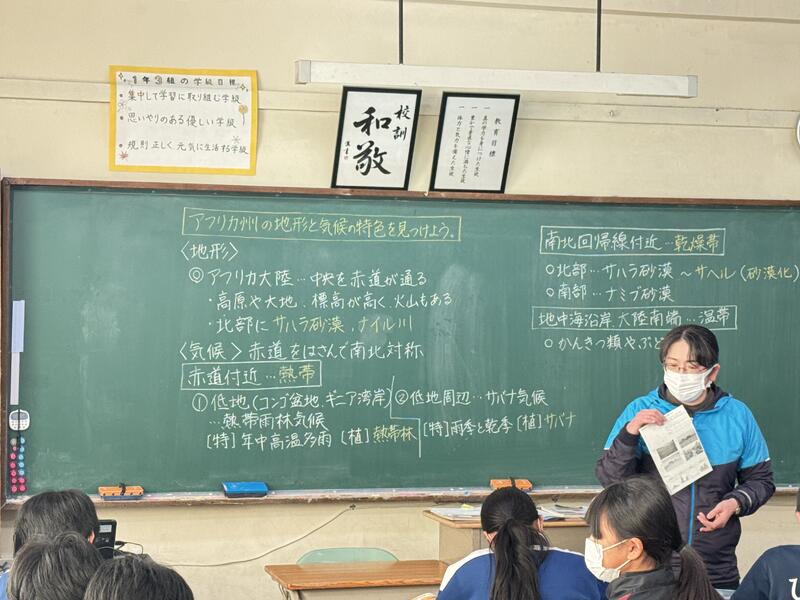 1年3組の学級目標
・集中して学習に取り組む学級
・思いやりのある優しい学級
・規則正しく元気に生活する学級
校訓
和敬
教育目標
一 真の学力を身につけた生徒
一 豊かで素直な心情に満ちた生徒
一 体力と気力を備えた生徒
アフリカ州の地形と気候の特色を見つけよう。
〈地形〉
◎アフリカ大陸…中央を赤道が通る
・高原や大地、標高が高く、火山もある
・北部にサハラ砂漠、ナイル川
〈気候〉赤道をはさんで南北対称
赤道付近…熱帯
①低地(コンゴ盆地、ギニア湾岸)
…熱帯雨林気候
[特]年中高温多雨 [植]熱帯林
②低地周辺…サバナ気候
[特]雨季と乾季 [植]サバナ
南北回帰線付近…乾燥帯
○北部…サハラ砂漠〜サヘル(砂漠化)
○南部…ナミブ砂漠
地中海沿岸、大陸南端…温帯
○かんきつ類やぶど